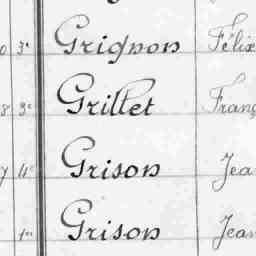 0 3e Grignon Félix
8 3e Grillet Franç
7 4e Grison Jea
1er Grison Jean